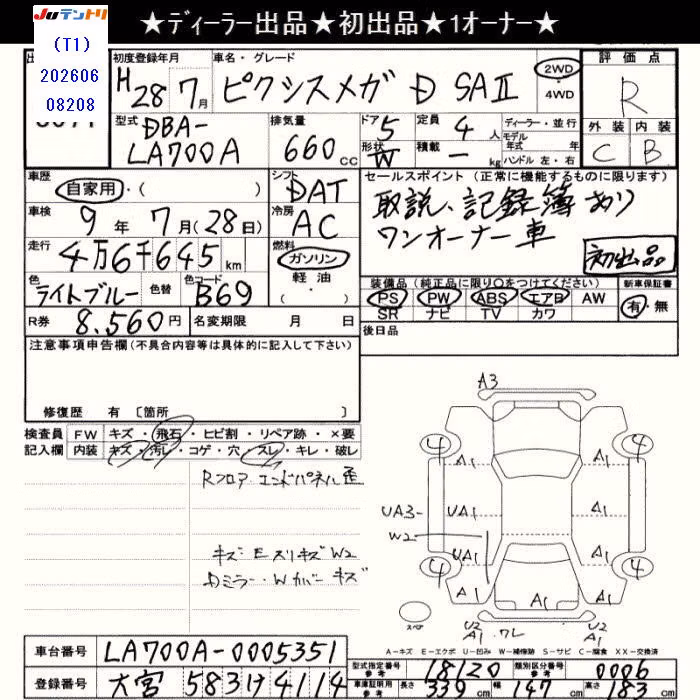 ★ディーラー出品★初出品★1オーナー★
JUテントリ
(T1)
202606
08208
初度登録年月 車名・グレード 評価点
H28 7月 ピクシスメガ D SAⅡ 2WD ・ 4WD R
型式 排気量 ドア 定員 ディーラー・並行 外装 内装
DBA-LA700A 660cc 5 4人 モデル年式 年式 C B
形状 W 積載 ー kg ハンドル 左・右
車歴 シフト セールスポイント (正常に機能するものに限ります)
自家用・( ) DAT 取説、記録簿あり
車検 冷房 ワンオーナー車
9年7月(28日) AC 初出品
走行 燃料
4万6千645km ガソリン
軽油
・( )
装備品 (純正品に限り○をつけてください) 新車保証書
色 ライトブルー 色替 色コード B69
PS PW ABS エアB AW 有・無
SR ナビ TV カワ
R券 8,560円 名変期限 月 日 後日品
注意事項申告欄(不具合内容等は具体的に記入して下さい)
修復歴 有 〔箇所 〕
検査員 FW キズ・飛石・ヒビ割・リペア跡・×要
記入欄 内装 キズ・汚レ・コゲ・穴・スレ・キレ・破レ
Rフロア エンドパネル歪
キズ E ズリキズ W2
Dミラー・Wカバー キズ
A3
4 A1 A1 4
UA3- UA1 A1
W2
UA1 A1
4 A1 A1 4
A1
スペア U2 A1 ワレ U2 A1
A-キズ E-エクボ U-凹み W-補修跡 S-サビ C-腐食 XX-交換済
車台番号 LA700A-0005351
型式指定番号 参考 18120 類別区分番号 参考 0006
登録番号 大宮 583け4114
車庫証明用 参考 長さ 339cm 幅 147cm 高さ 183cm